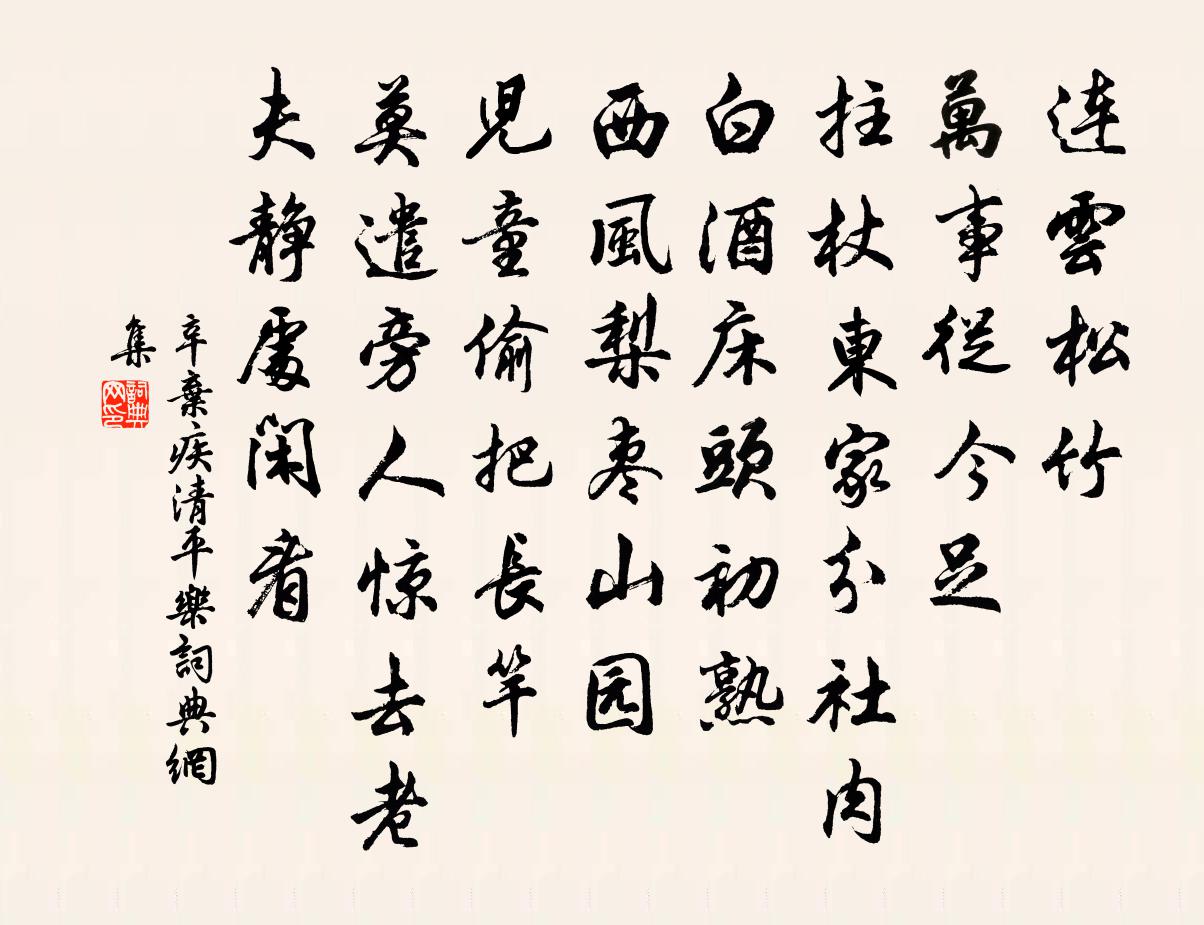 连雲松竹
萬事從今足
拄杖東家分社肉
白酒床頭初熟
西風梨枣山园
児童偷把長竿
莫遣旁人惊去老
夫静處閑看
辛棄疾清平樂詞典網
集
詞典網印